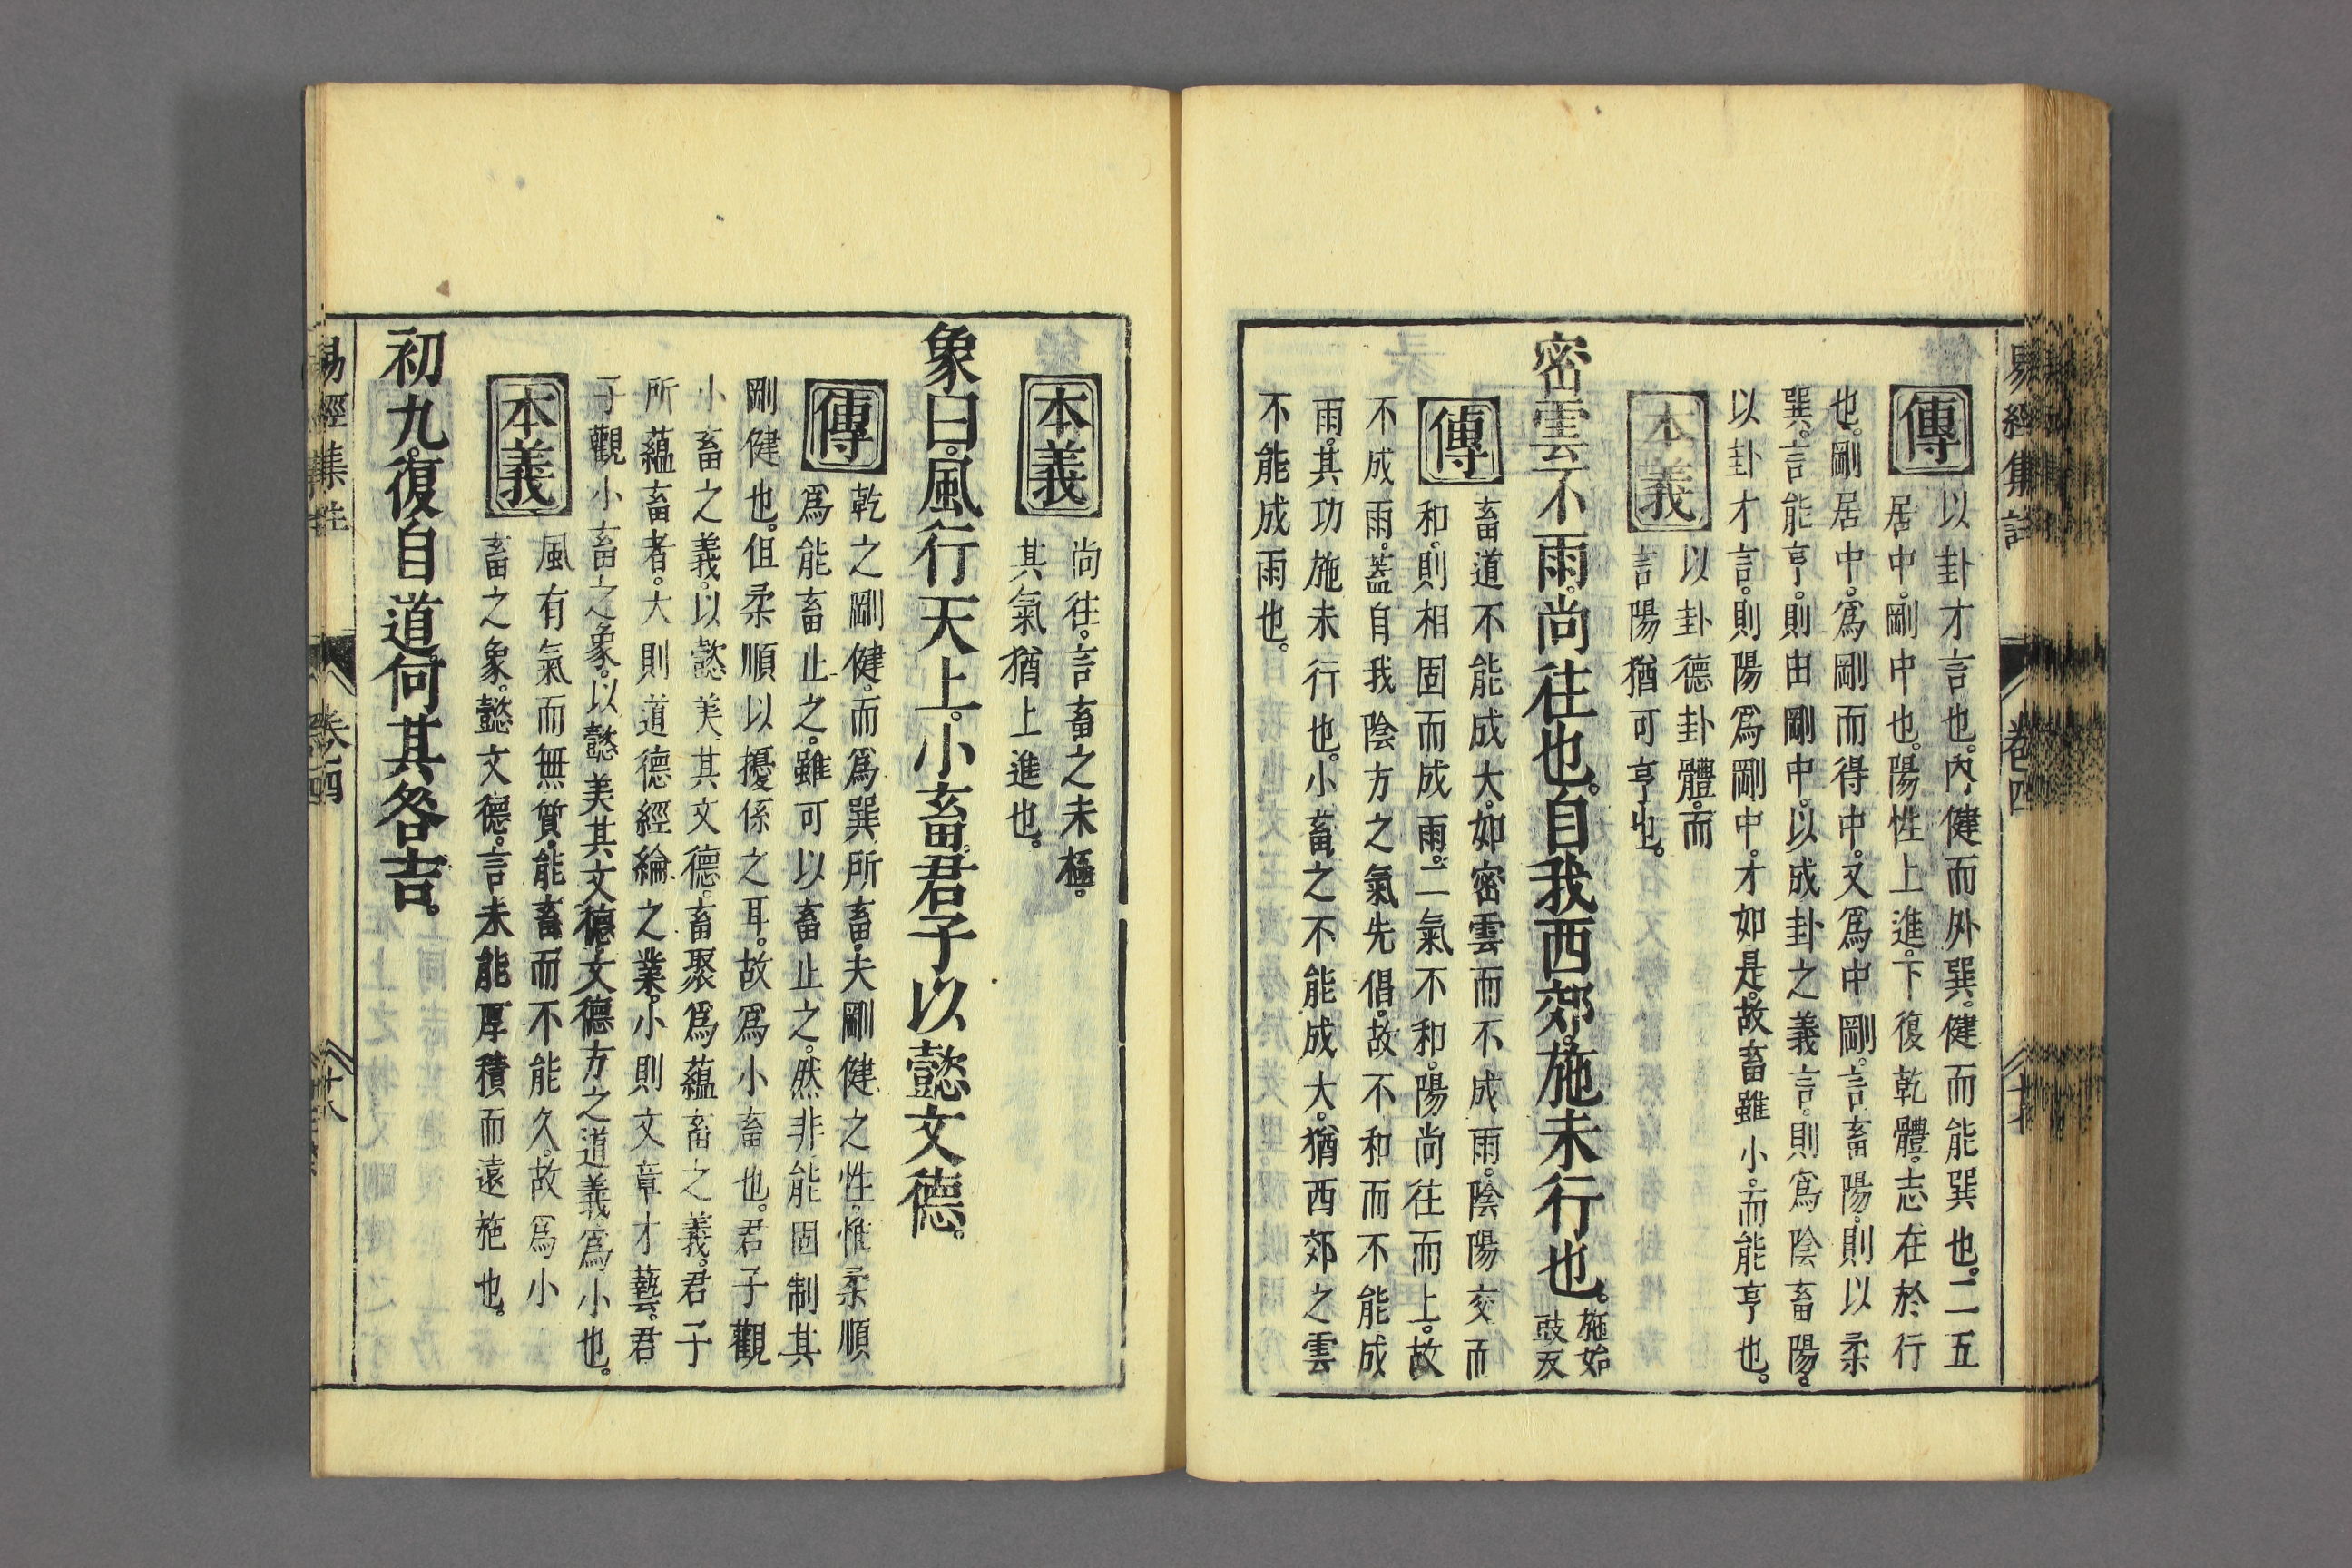 易經集註 卷四
傳 以卦才言也。內健而外巽。健而能巽也。二五
居中。剛中也。陽性上進。下復乾體。志在於行
也。剛居中。爲剛而得中。又爲中剛。言畜陽。則以柔
巽。言能亨。則由剛中。以成卦之義言。則爲陰畜陽。
以卦才言。則陽爲剛中。才如是。故畜雖小。而能亨也。
本義 以卦德卦體。而
言陽猶可亨也。
密雲不雨。尚往也。自我西郊。施未行也。施始
豉反
傳 畜道不能成大。如密雲而不成雨。陰陽交而
和。則相固而成雨。二氣不和。陽尚往而上。故
不成雨。蓋自我陰方之氣先倡。故不和而不能成
雨。其功施未行也。小畜之不能成大。猶西郊之雲
不能成雨也。
本義 尚往。言畜之未極。
其氣猶上進也。
象曰。風行天上。小畜。君子以懿文德。
傳 乾之剛健。而爲巽所畜。夫剛健之性。惟柔順
爲能畜止之。雖可以畜止之。然非能固制其
剛健也。但柔順以擾係之耳。故爲小畜也。君子觀
小畜之義。以懿美其文德。畜聚爲蘊畜之義。君子
所蘊畜者。大則道德經綸之業。小則文章才藝。君
子觀小畜之象。以懿美其文德。文德方之道義爲小也。
本義 風有氣而無質。能畜而不能久。故爲小
畜之象。懿文德。言未能厚積而遠施也。
初九。復自道。何其咎。吉。
易經集註 卷四 十八